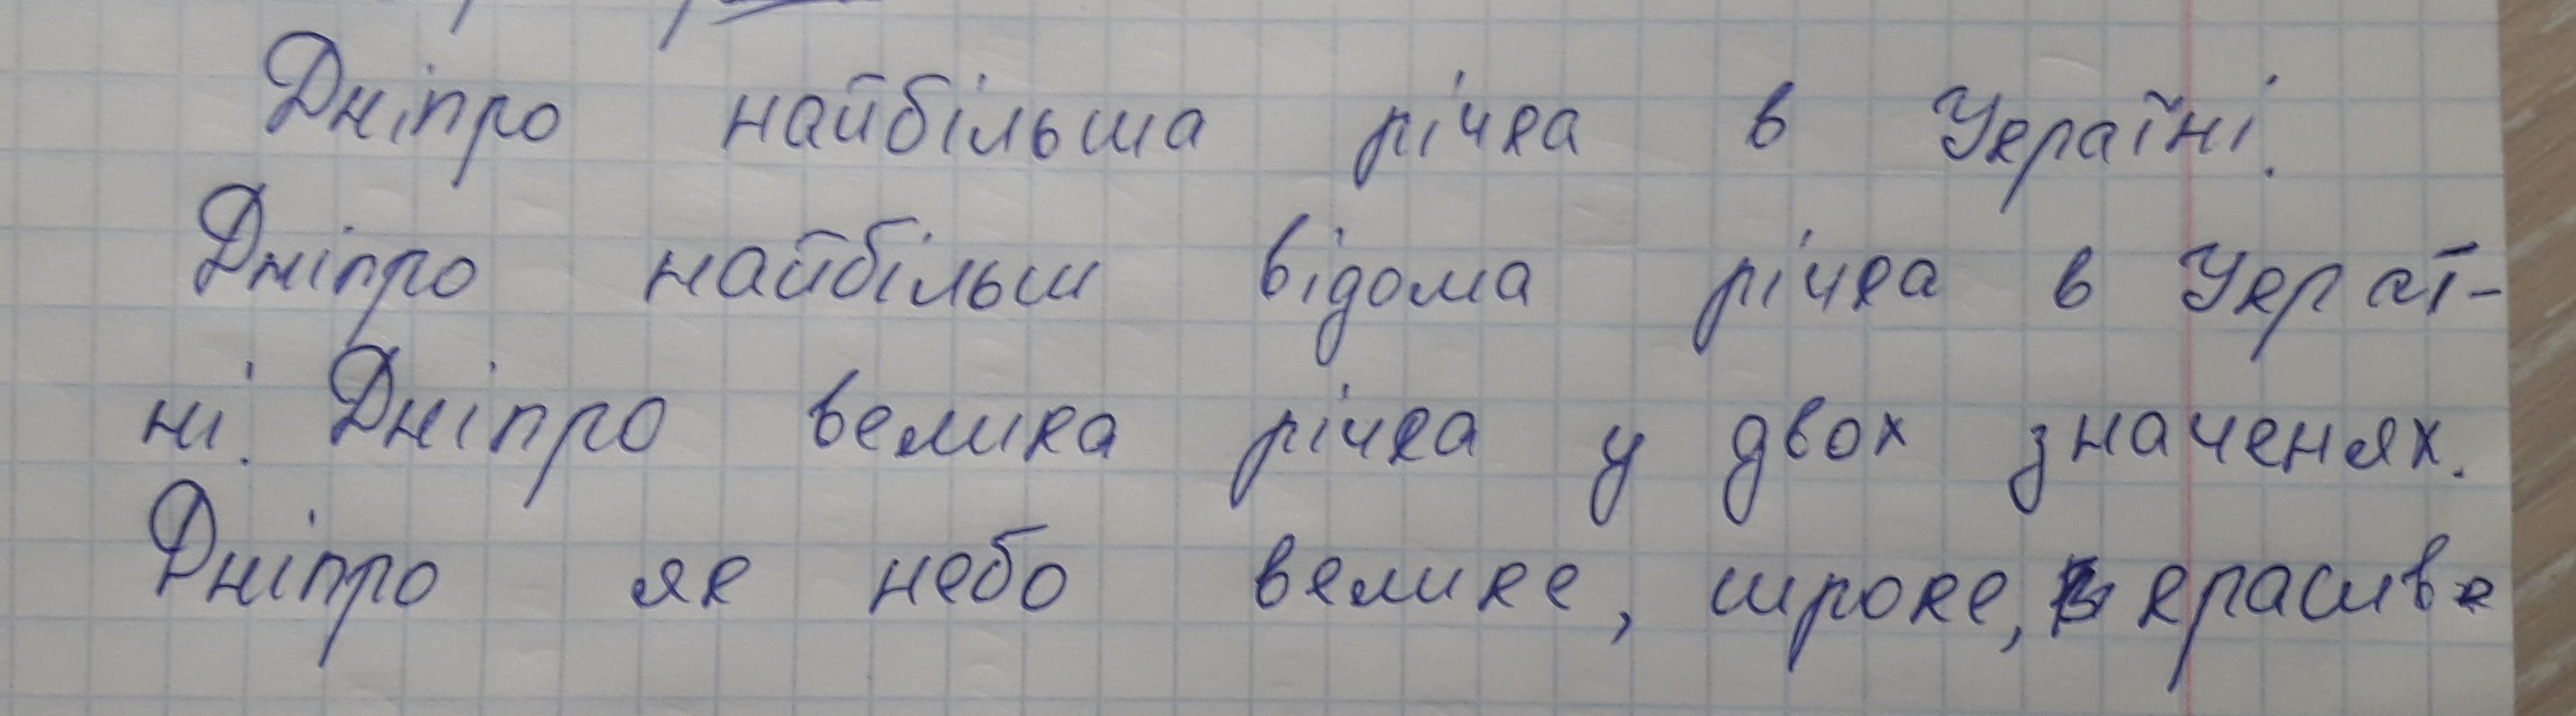 Дніпро найбільша річка в Україні.
Дніпро найбільш відома річка в Украї-
ні. Дніпро велика річка у двох значенях.
Дніпро як небо велике, шроке, красиве